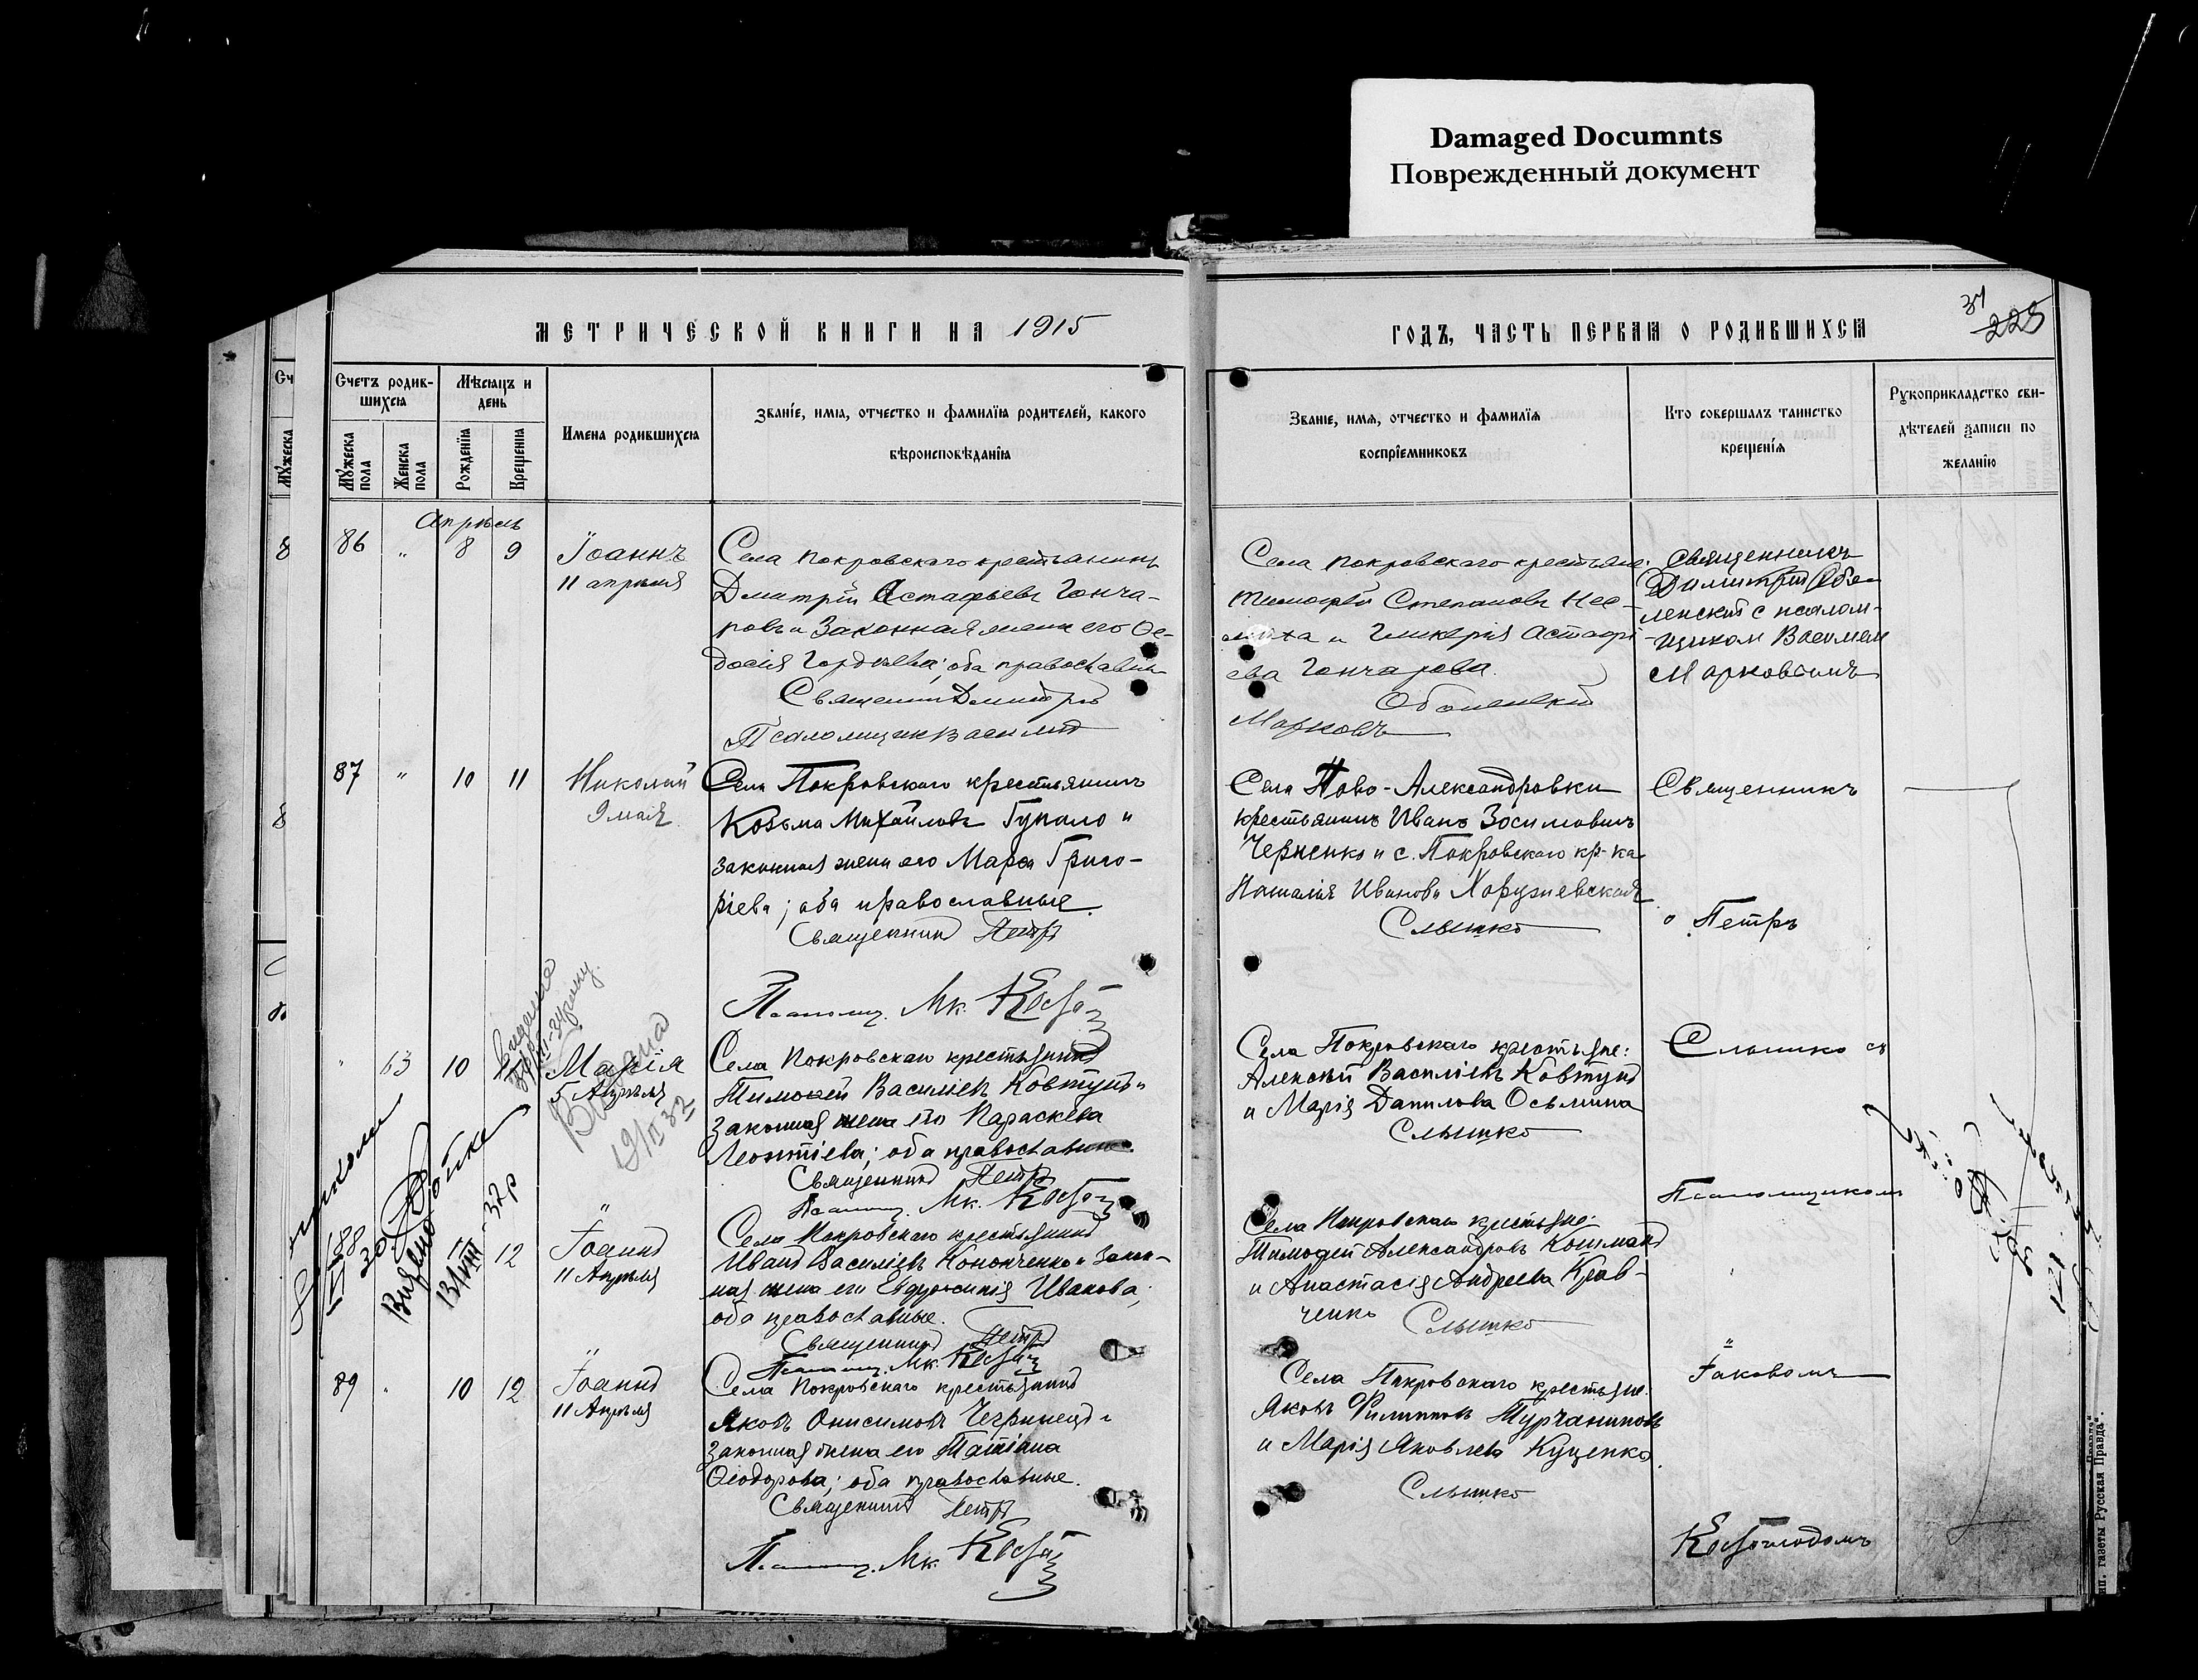 Damaged Documnts
Поврежденный документ
МЕТРИЧЕСКОЙ КНИГИ НА 1915
Счетъ родив-
шихся
Мѣсяцъ и
день
Мужеска пола
Женска пола
Рожденія
Крещенія
Имена родившихся
Званіе, имя, отчество и фамилія родителей, какого
вѣроисповѣданія
Апрѣль
86 " 8 9
Іоаннъ
11 апрѣля
Села Покровскаго крестьянинъ
Дмитрій Астафьевъ Гонча-
ровъ и законная жена его Ѳео-
досія Гордѣева; оба православны
Священникъ Димитрій
Псаломщик Василій
87 " 10 11
Николай
9 мая
Села Покровскаго крестьянинъ
Козьма Михайловъ Гупало и
законная жена его Марѳа Григо-
ріева; оба православные.
Священникъ Петръ
Псаломщ. Мк.
" 63 10
Марія
5 Апрѣля
Выдана
19/II 32
Села Покровскаго крестьянинъ
Тимоѳей Василіевъ Ковтунъ и
законная жена его Параскева
Леонтіева; оба православные.
Священникъ Петръ
Псаломщ. Мк.
88
12
Іоаннъ
11 Апрѣля
Видано
13/VIII-32р
Села Покровскаго крестьянинъ
Иванъ Василіевъ Кононченко и закон-
ная жена его Евдокія Иванова;
оба православные.
Священникъ Петръ
Псаломщ. Мк.
89 " 10 12
Іоаннъ
11 Апрѣля
Села Покровскаго крестьянинъ
Яковъ Онисимовъ Чегринецъ и
законная жена его Татіана
Ѳеодорова; оба православные.
Священникъ Петръ
Псаломщ. Мк.
ГОДЪ, ЧАСТЬ ПЕРВАЯ О РОДИВШИХСЯ
37
225
Званіе, имя, отчество и фамилія
воспріемниковъ
Кто совершалъ таинство
крещенія
Рукоприкладство сви-
дѣтелей записи по
желанію
Села Покровскаго крестьяне:
Тимоѳей Степановъ
и Гликерія Астафі-
ева Гончарова.
Оболенскій
Марковъ
Священникъ
Димитрій Обо-
ленский с псалом-
щиком Василием
Марковымъ
Села Ново-Александровки
крестьянинъ Иванъ Зосимовичъ
Черненко и с. Покровскаго кр-ка
Наталія Иванова Хоружевская
Слышко
Священникъ
Петръ
Села Покровскаго крестьяне:
Алексѣй Василіевъ Ковтунъ
и Марія Данилова Осьмина
Слышко
Слышко съ
Псаломщикомъ
Села Покровскаго крестьяне:
Тимоѳей Александровъ Кошманъ
и Анастасія Андреева Крав-
ченко
Слышко
Іаковомъ
Села Покровскаго крестьяне:
Яковъ Филипповъ Турчаниновъ
и Марія Яковлева Куценко.
Слышко
газеты „Русская Правда“.